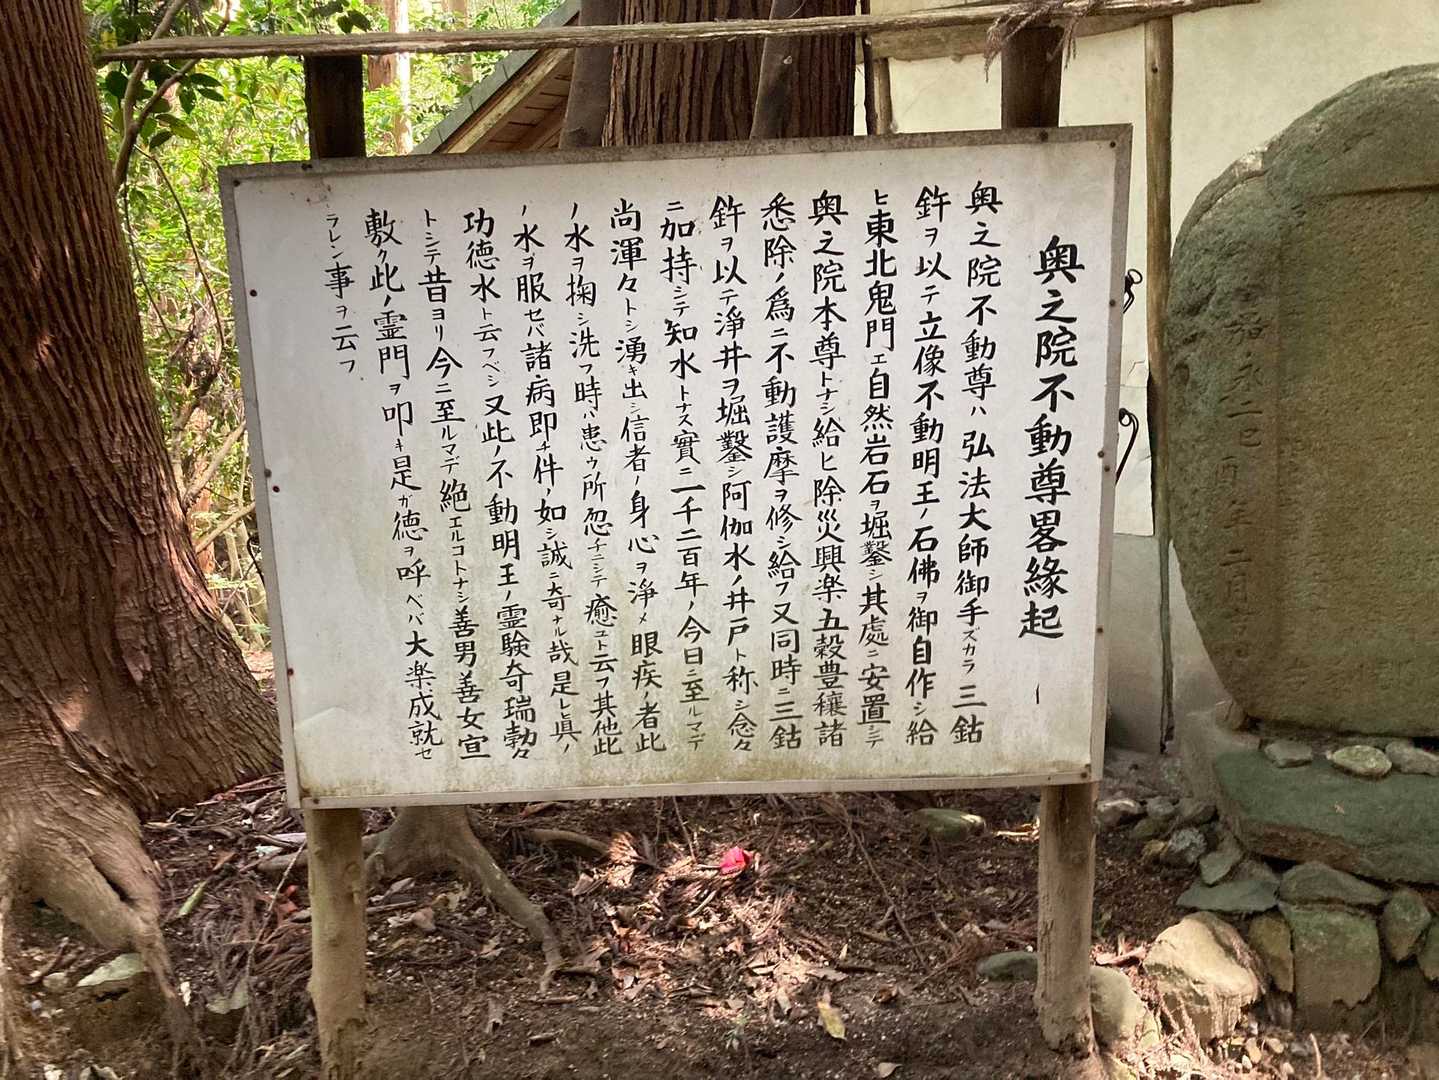 奥之院不動尊畧緣起
奥之院不動尊ハ弘法大師御手ズカラ三鈷
鈝ヲ以テ立像不動明王ノ石佛ヲ御自作シ給
ヒ東北鬼門エ自然岩石ヲ堀鑿シ其處ニ安置シテ
奥之院本尊トナシ給ヒ除災興楽五穀豊穰諸
悉除ノ爲ニ不動護摩ヲ修シ給フ又同時ニ三鈷
鈝ヲ以テ淨井ヲ堀鑿シ阿伽水ノ井戸ト称シ念々
ニ加持シテ知水トナス實ニ一千二百年ノ今日ニ至ルマデ
尚渾々トシ湧キ出シ信者ノ身心ヲ淨メ眼疾ノ者此
ノ水ヲ掬シ洗フ時ハ患ゥ所忽チニシテ癒ユト云フ其他此
ノ水ヲ服セバ諸病即チ件ノ如シ誠ニ奇ナル哉是レ眞ノ
功徳水ト云フベシ又此ノ不動明王ノ霊験奇瑞勃々
トシテ昔ヨリ今ニ至ルマデ絶エルコトナシ善男善女宣
敷ク此ノ霊門ヲ叩キ是ガ徳ヲ呼ベバ大楽成就セ
ラレン事ヲ云フ